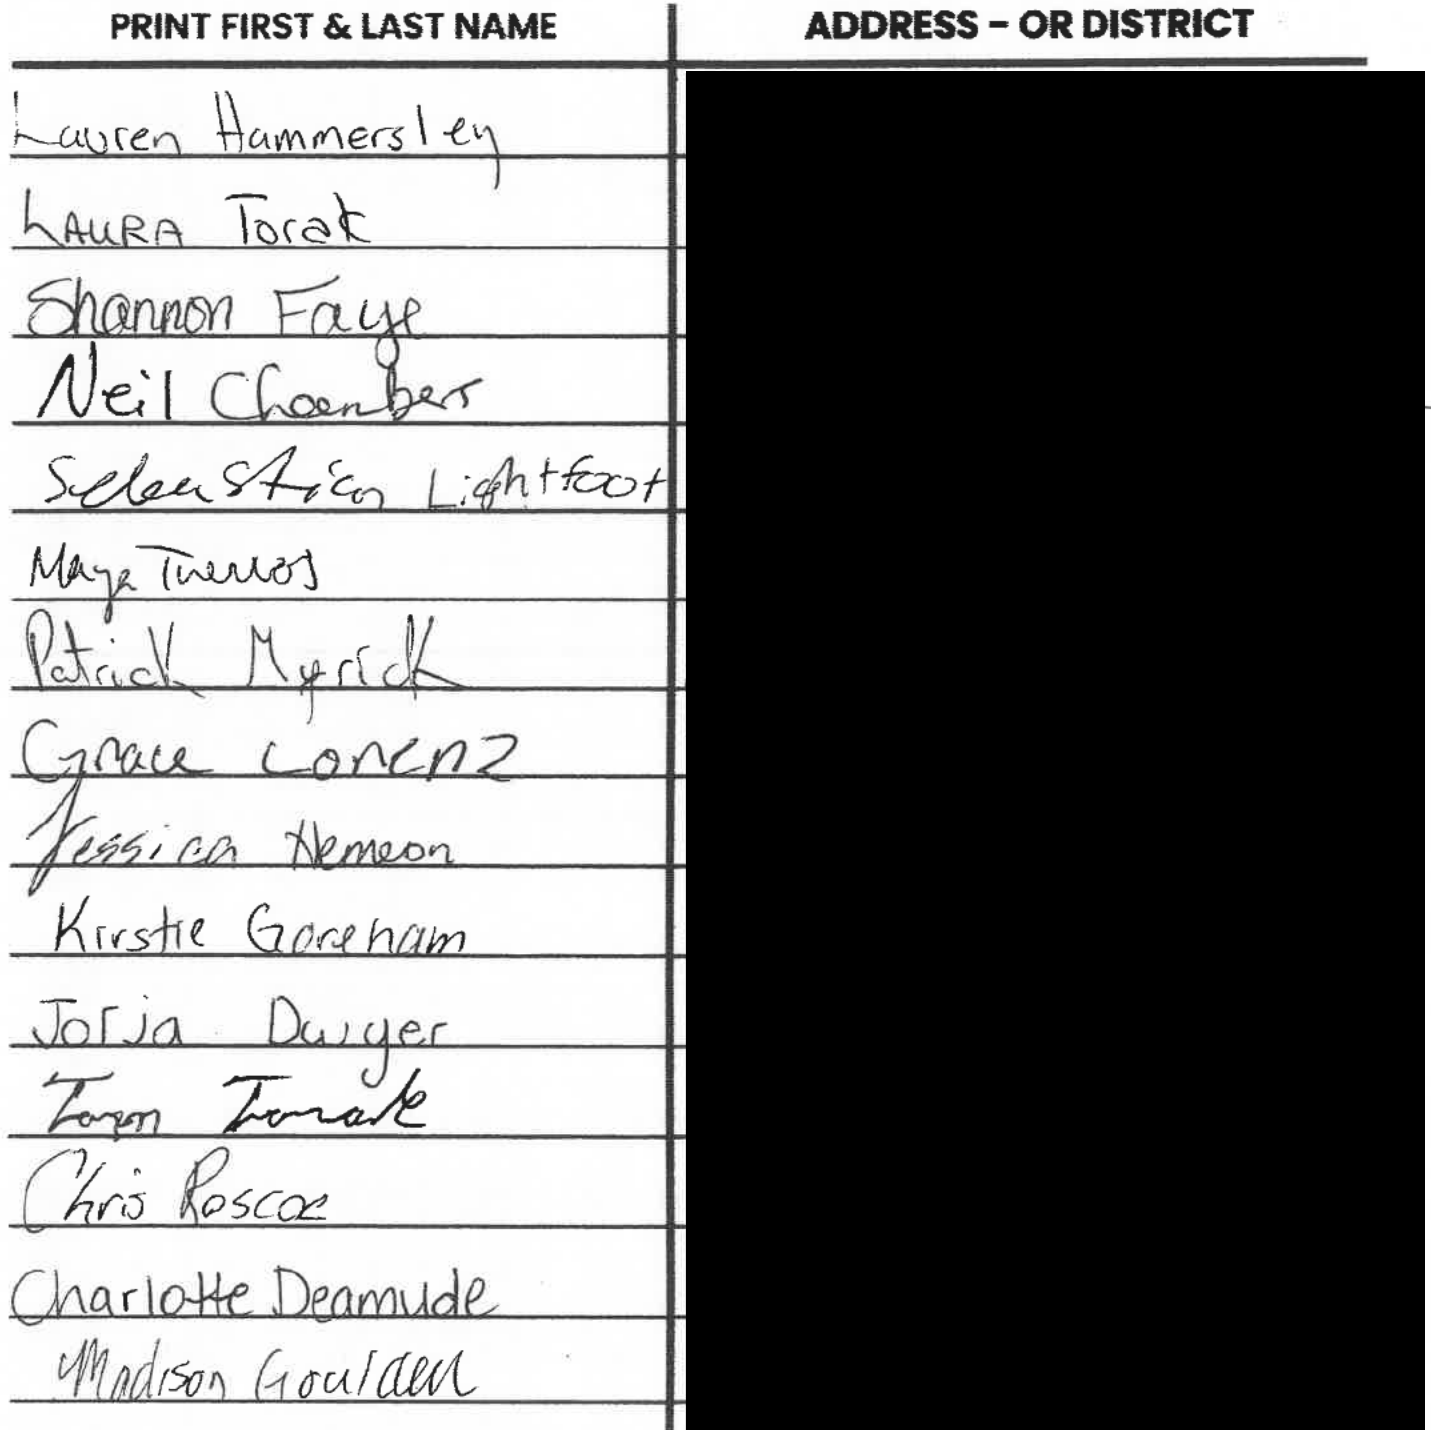 PRINT FIRST & LAST NAME ADDRESS – OR DISTRICT
Lauren Hammersley
LAURA Torak
Shannon Faye
Neil Chambers
Sebastian Lightfoot
Maya
Patrick Myrick
Grace Lorenz
Jessica Hemeon
Kirstie Goreham
Jorja Dwyer
Chris Roscoe
Charlotte Deamude
Madison Goulden